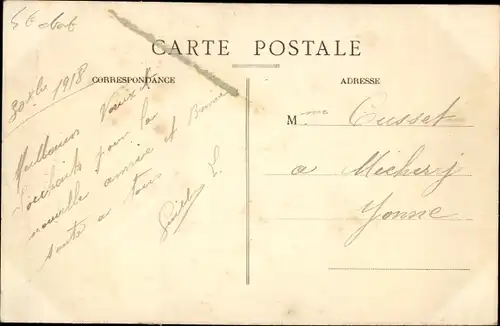 CARTE POSTALE
CORRESPONDANCE
30 Xbre 1918
Meilleurs Voeux &
Souhaits pour la
nouvelle année et Bonne
santé a tous
ADRESSE
Mme Cusset
a Michery
Yonne